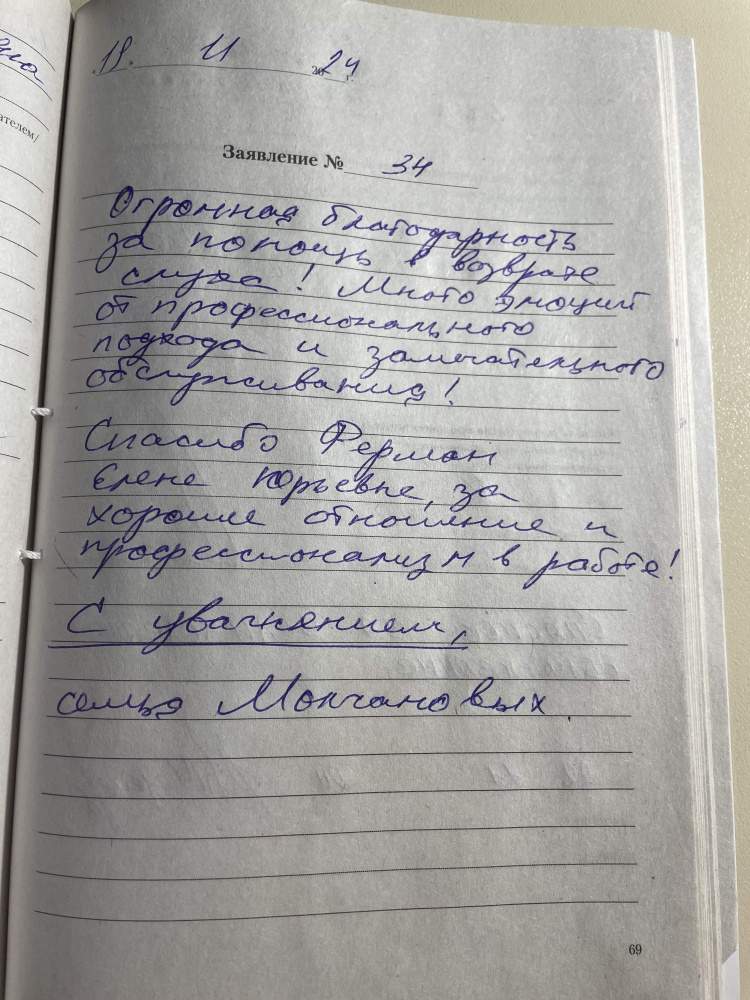 19. 11 2024 г.
Заявление № 34
Огромная благодарность
за помощь в возврате
слуха! Много эмоций
от профессионального
подхода и замечательного
обслуживания!
Спасибо Ферман
Елене Юрьевне, за
хорошие отношение и
профессионализм в работе!
С уважением,
семья Молчановых
69
ателем/